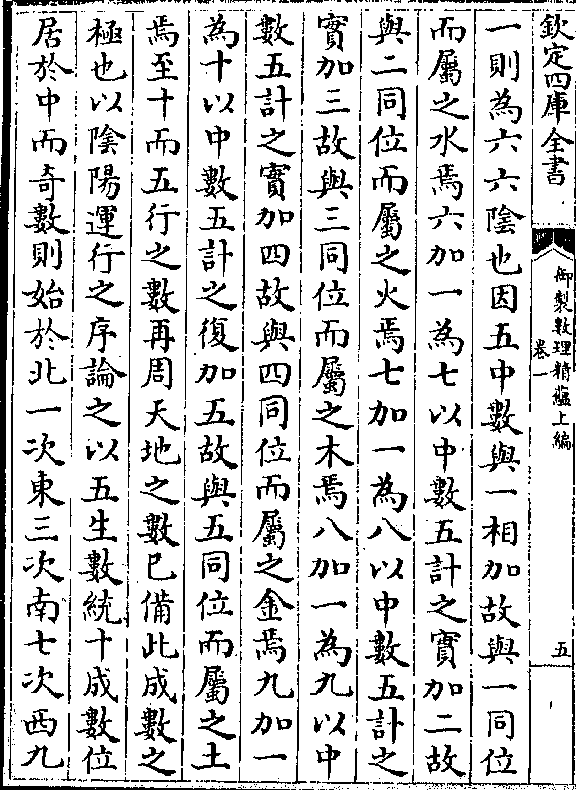 欽定四庫全書
御製數理精蘊上編
卷一
五
一則為六六陰也因五中數與一相加故與一同位
而屬之水焉六加一為七以中數五計之實加二故
與二同位而屬之火焉七加一為八以中數五計之
實加三故與三同位而屬之木焉八加一為九以中
數五計之實加四故與四同位而屬之金焉九加一
為十以中數五計之復加五故與五同位而屬之土
焉至十而五行之數再周天地之數已備此成數之
極也以陰陽運行之序論之以五生數統十成數位
居於中而奇數則始於北一次東三次南七次西九